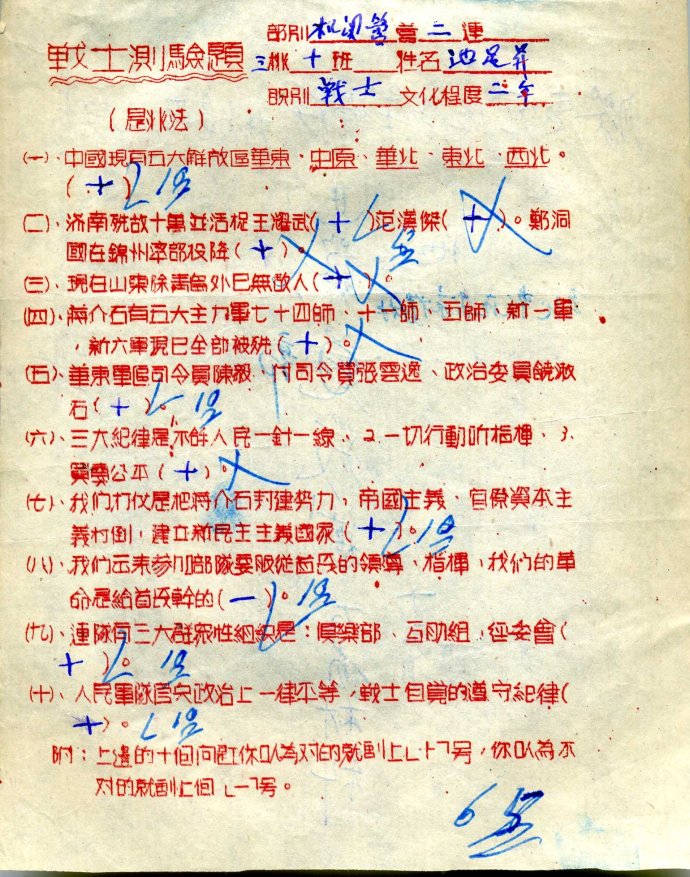 戰士測驗題
部別 机边营 营 二 連
三排 十 班 姓名 池足昇
職別 戰士 文化程度 二年
(是非法)
(一)、中國現有五大解放區華東、中原、華北、東北、西北。
(+) 1分
(二)、济南殲敌十萬並活捉王耀武(+)范漢傑(+)。鄭洞
國在錦州率部投降(+)。 分
(三)、現在山東除青島外已無敌人(+)。
(四)、蔣介石有五大主力軍七十四師、十一師、五師、新一軍
、新六軍現已全部被殲(+)。
(五)、華東軍區司令員陳毅、付司令員張雲逸、政治委員饒漱
石(+)。 1分
(六)、三大紀律是不拿人民一針一線、2.一切行動听指揮、3.
買賣公平(+)。
(七)、我們打仗是把蔣介石封建势力,帝國主義、官僚資本主
義打倒,建立新民主主義國家(+)。 1分
(八)、我們云來参加部隊要服從首長的領導、指揮,我們的革
命是給首長幹的(一)。 1分
(九)、連隊有三大群众性組織是:俱樂部、互助組,經委會(
+)。 1分
(十)、人民軍隊官兵政治上一律平等,戰士自覚的遵守紀律(
+)。 1分
附:上邊的十個问题你认為对的就划上「十」号,你认為不
对的就划上個「一」号。
6分